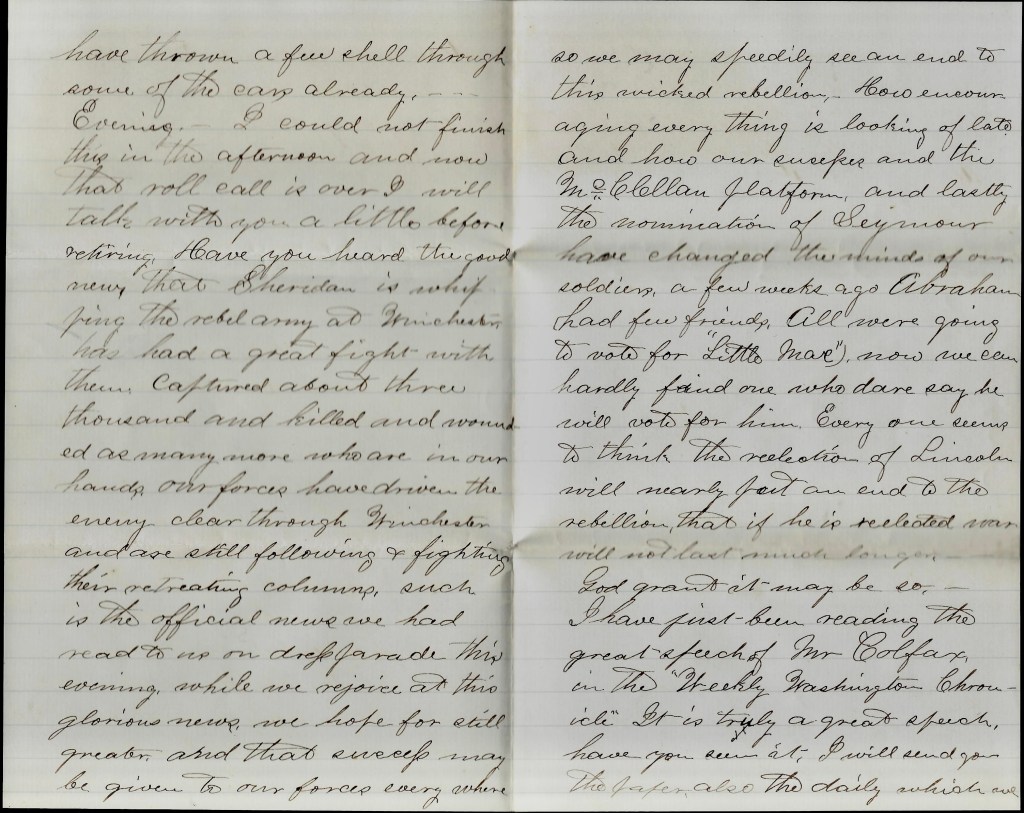 have thrown a few shell through
some of the cars already. - - -
Evening. - I could not finish
this in the afternoon and now
that roll call is over I will
talk with you a little before
retiring. Have you heard the good
news, that Sheridan is whip
ping the rebel army at Winchester.
has had a great fight with
them. Captured about three
thousand and killed and wound
ed as many more who are in our
hands, our forces have driven the
enemy clear through Winchester
and are still following & fighting
their retreating columns, such
is the official news we had
read to us on dress parade this
evening, while we rejoice at this
glorious news, we hope for still
greater. and that success may
be given to our forces every where
so we may speedily see an end to
this wicked rebellion,- How encour
aging every thing is looking of late
and how our success and the
McClellan platform, and lastly
the nomination of Seymour
have changed the minds of our
soldiers, a few weeks ago Abraham
had few friends. All were going
to vote for "Little Mac"). now we can
hardly find one who dare say he
will vote for him. Every one seems
to think the reelection of Lincoln
will nearly put an end to the
rebellion, that if he is reelected war
will not last much longer. -
God grant it may be so. -
I have just been reading the
great speech of Mr Colfax,
in the "Weekly Washington Chron-
icle" It is truly a great speech,
have you seen it, I will send you
the paper, also the daily which we